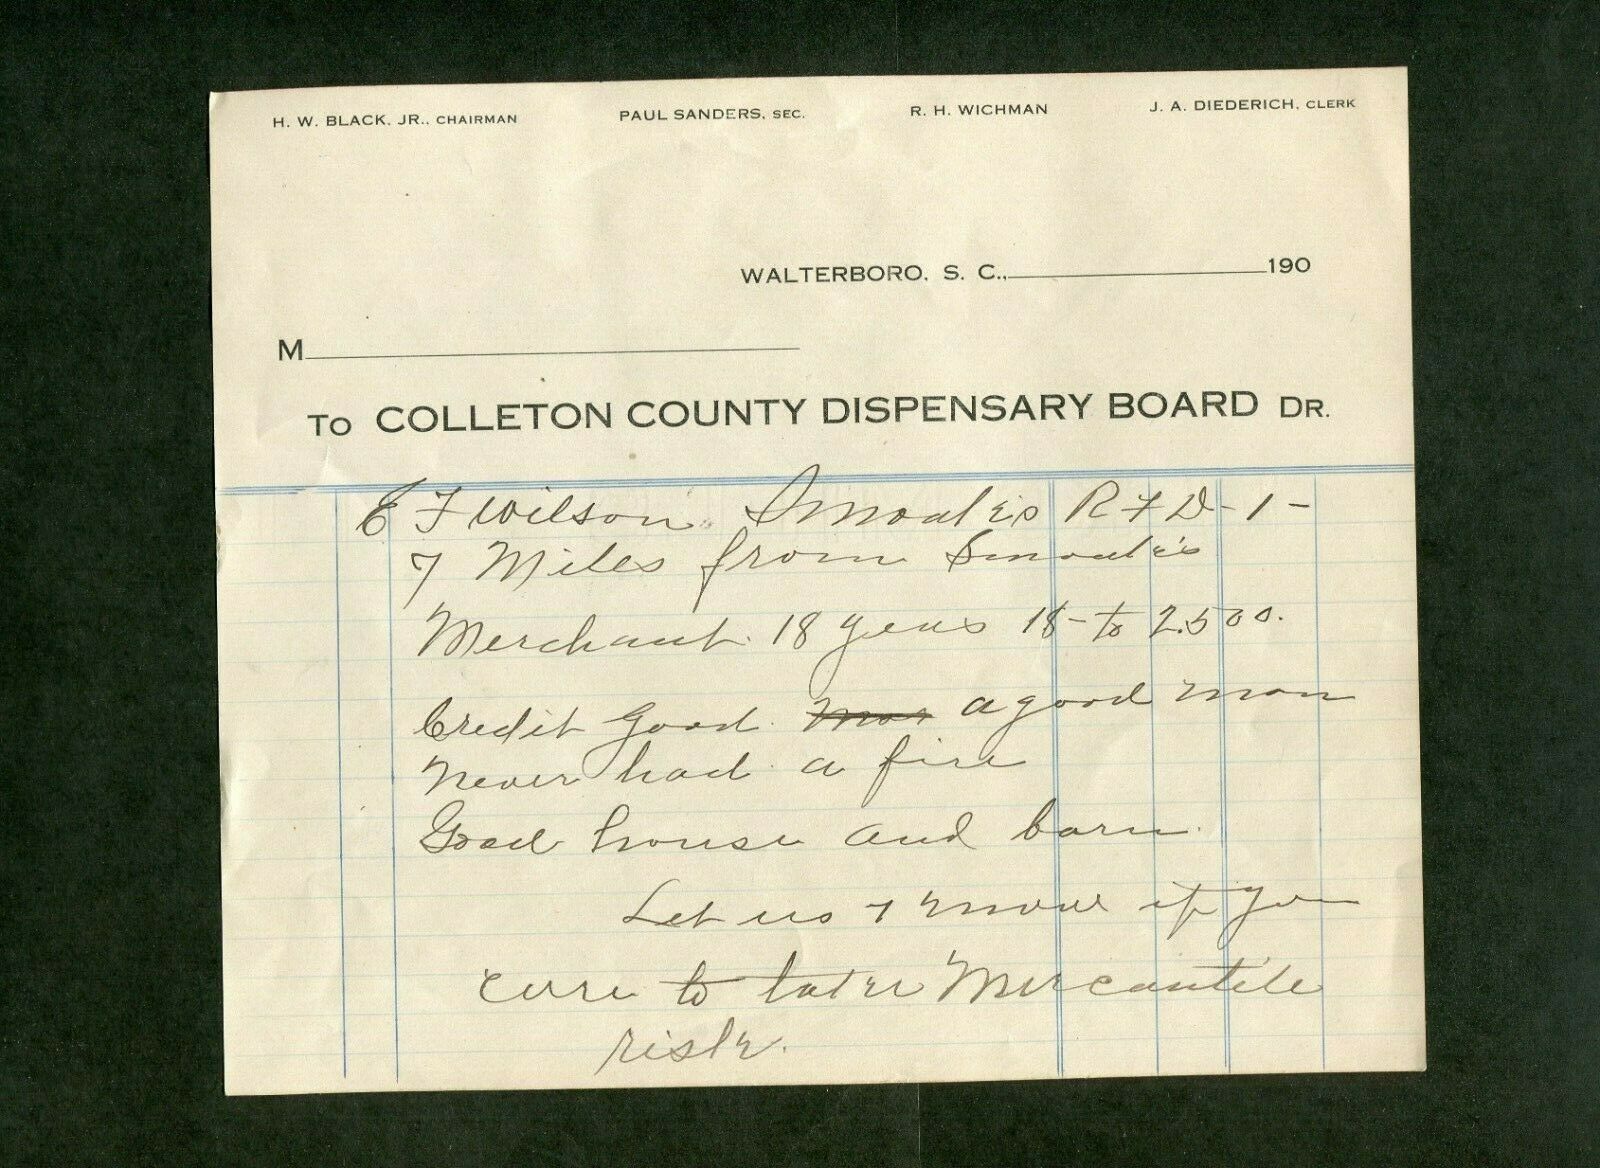 H. W. BLACK, JR., CHAIRMAN PAUL SANDERS, SEC. R. H. WICHMAN J. A. DIEDERICH, CLERK
WALTERBORO, S. C., 190
M
TO COLLETON COUNTY DISPENSARY BOARD DR.
E F Wilson Smoak's R F D - 1 -
7 Miles from Smoak's
Merchant 18 years 18 - to 2.500.
Credit Good. a good man
Never had a fire
Good house and barn.
Let us if you
care to take Mercantile
risk.